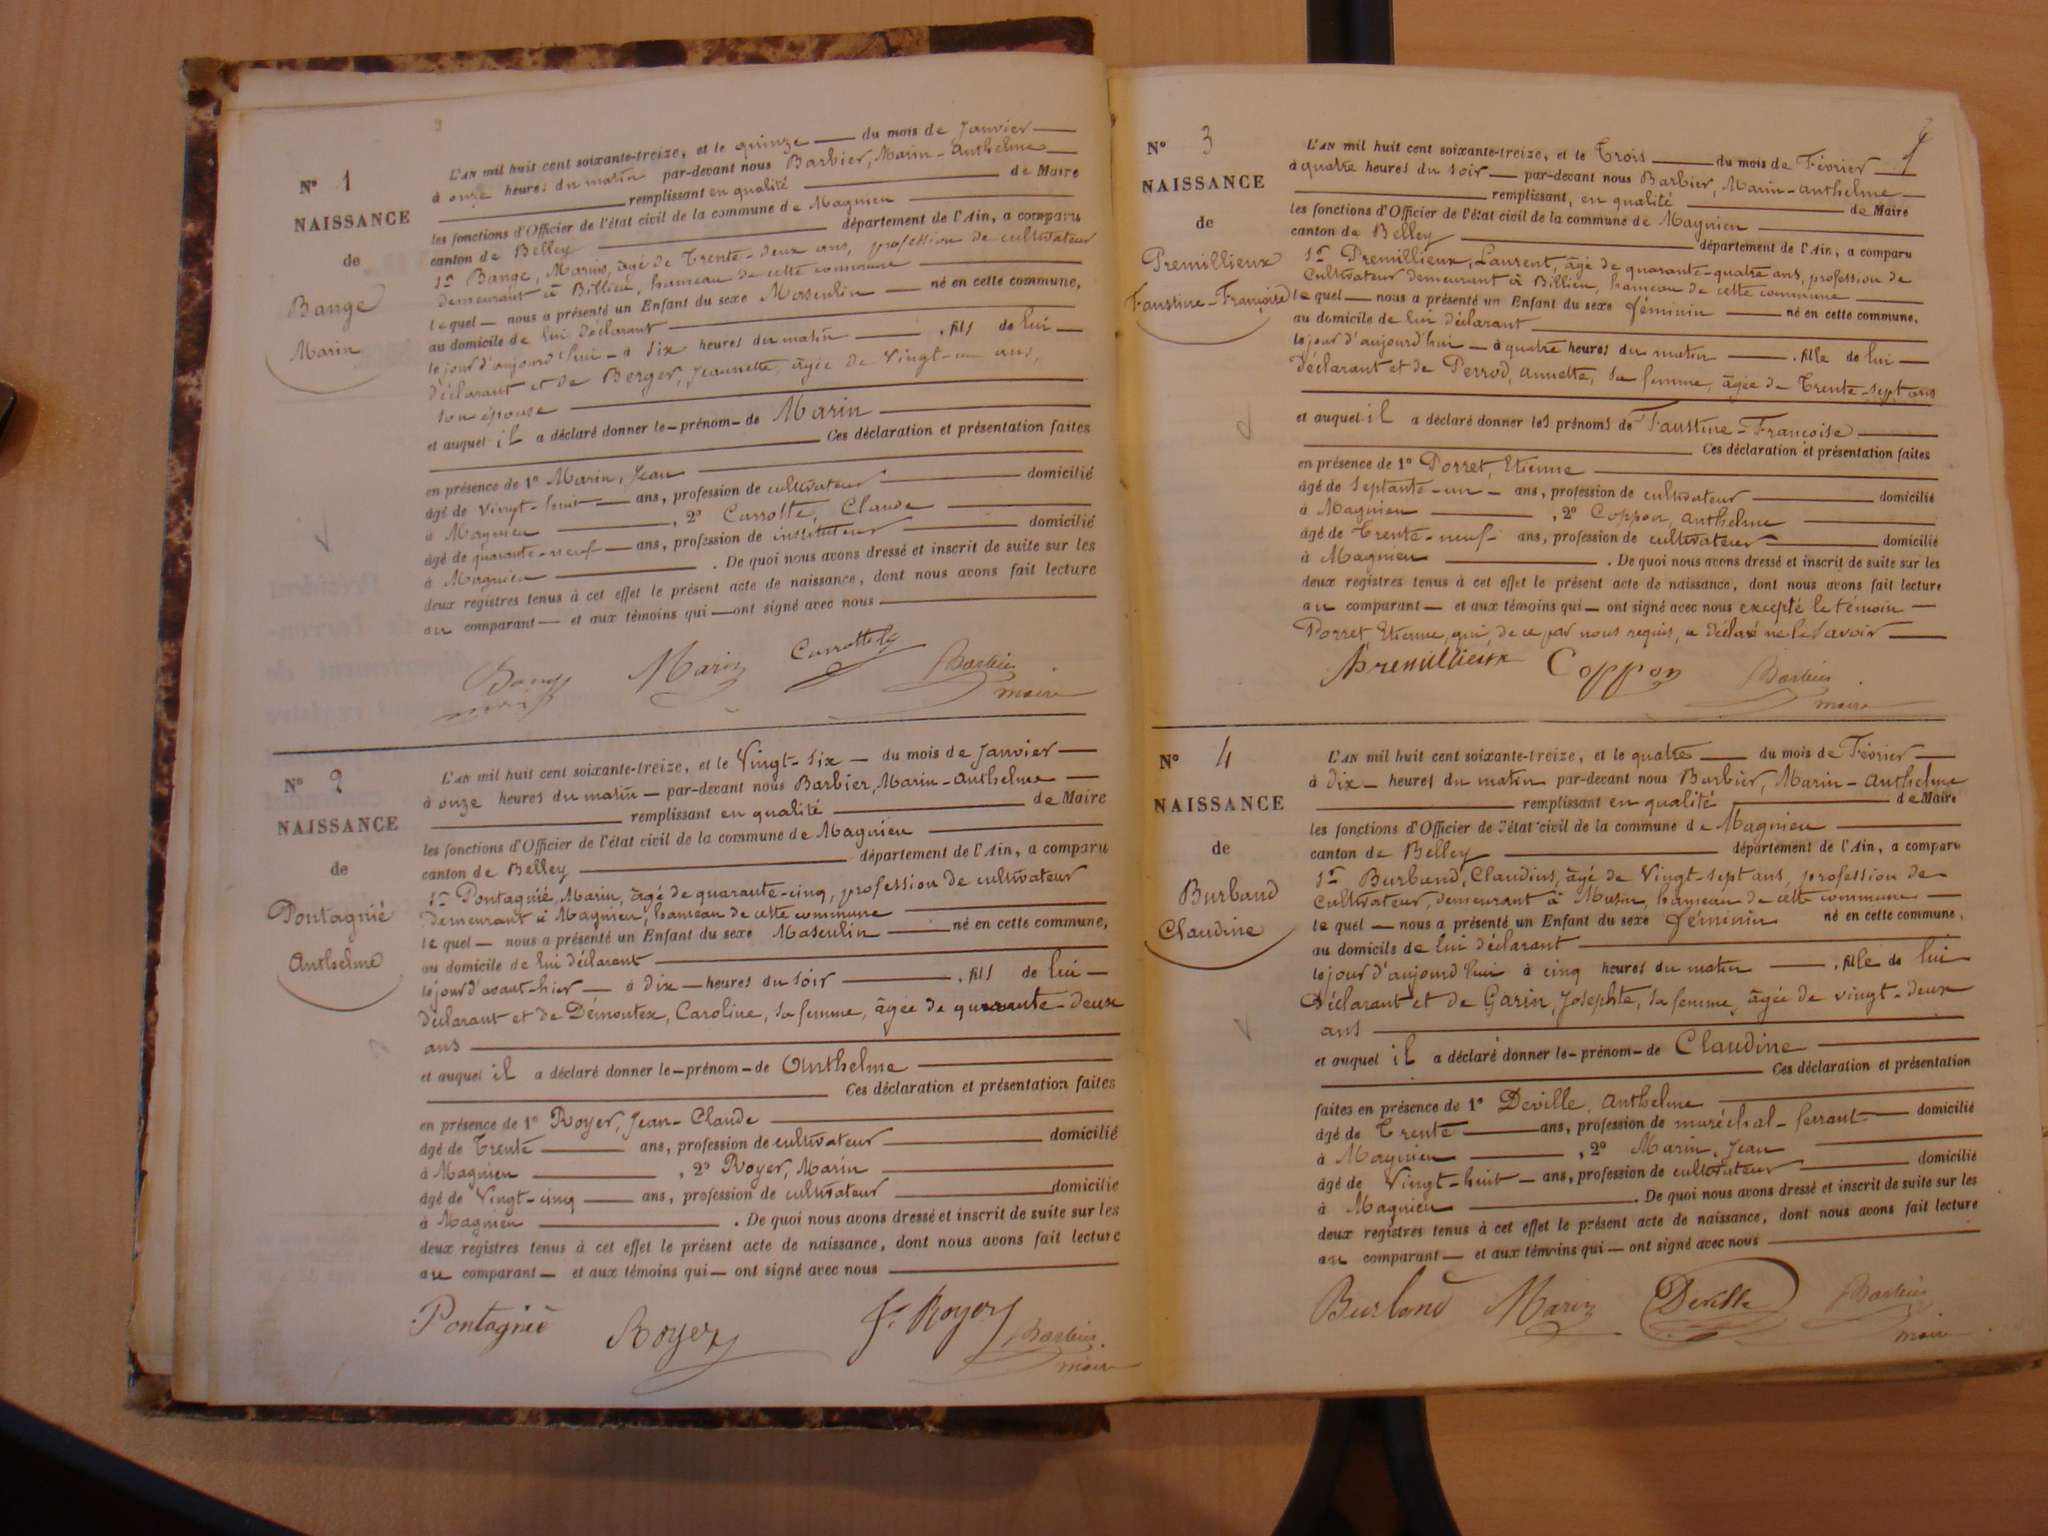 N° 1
NAISSANCE
de
Bange
Marin
L'AN mil huit cent soixante-treize, et le quinze du mois de Janvier
à onze heures du matin par-devant nous Barbier, Marin-Anthelme
remplissant en qualité de Maire
les fonctions d'Officier de l'état civil de la commune de Magnieu
canton de Belley département de l'Ain, a comparu
1° Bange, Marin, âgé de Trente-deux ans, profession de cultivateur
demeurant à Billieu, hameau de cette commune
lequel nous a présenté un Enfant du sexe Masculin né en cette commune,
au domicile de lui déclarant
le jour d'aujourd'hui à dix heures du matin , fils de lui
déclarant et de Berger, Jeannette, âgée de Vingt-un ans,
son épouse
et auquel il a déclaré donner le prénom de Marin
Ces déclaration et présentation faites
en présence de 1° Marin, Jean
âgé de vingt-huit ans, profession de cultivateur domicilié
à Magnieu , 2° Carrotte, Claude
âgé de quarante-neuf ans, profession de instituteur domicilié
à Magnieu . De quoi nous avons dressé et inscrit de suite sur les
deux registres tenus à cet effet le présent acte de naissance, dont nous avons fait lecture
au comparant et aux témoins qui ont signé avec nous
Marin Barbier
maire
N° 2
NAISSANCE
de
Pontagnié
Anthelme
L'AN mil huit cent soixante-treize, et le Vingt-six du mois de Janvier
à onze heures du matin par-devant nous Barbier, Marin-Anthelme
remplissant en qualité de Maire
les fonctions d'Officier de l'état civil de la commune de Magnieu
canton de Belley département de l'Ain, a comparu
1° Pontagnié, Marin, âgé de quarante-cinq, profession de cultivateur
demeurant à Magnieu, hameau de cette commune
lequel nous a présenté un Enfant du sexe Masculin né en cette commune,
au domicile de lui déclarant
le jour d'avant-hier à dix heures du soir , fils de lui
déclarant et de Démontex, Caroline, sa femme, âgée de quarante-deux
ans
et auquel il a déclaré donner le prénom de Anthelme
Ces déclaration et présentation faites
en présence de 1° Royer, Jean-Claude
âgé de Trente ans, profession de cultivateur domicilié
à Magnieu , 2° Royer, Marin
âgé de Vingt-cinq ans, profession de cultivateur domicilié
à Magnieu . De quoi nous avons dressé et inscrit de suite sur les
deux registres tenus à cet effet le présent acte de naissance, dont nous avons fait lecture
au comparant et aux témoins qui ont signé avec nous
Pontagnié Royer Royer Barbier
maire
N° 3
NAISSANCE
de
Premillieux
Faustine-Françoise
L'AN mil huit cent soixante-treize, et le Trois du mois de Février
à quatre heures du soir par-devant nous Barbier, Marin-Anthelme
remplissant, en qualité de Maire
les fonctions d'Officier de l'état civil de la commune de Magnieu
canton de Belley département de l'Ain, a comparu
1° Premillieux, Laurent, âgé de quarante-quatre ans, profession de
Cultivateur demeurant à Billieu, hameau de cette commune
lequel nous a présenté un Enfant du sexe féminin né en cette commune,
au domicile de lui déclarant
le jour d'aujourd'hui à quatre heures du matin , fille de lui
déclarant et de Perrod, Annette, sa femme, âgée de Trente-sept ans
et auquel il a déclaré donner les prénoms de Faustine-Françoise
Ces déclaration et présentation faites
en présence de 1° Porret, Etienne
âgé de septante-un ans, profession de cultivateur domicilié
à Magnieu , 2° Coppon, Anthelme
âgé de Trente-neuf ans, profession de cultivateur domicilié
à Magnieu . De quoi nous avons dressé et inscrit de suite sur les
deux registres tenus à cet effet le présent acte de naissance, dont nous avons fait lecture
au comparant et aux témoins qui ont signé avec nous excepté le témoin
Porret Etienne, qui, de ce par nous requis, a déclaré ne le savoir
Premillieux Coppon Barbier
maire
N° 4
NAISSANCE
de
Burbaud
Claudine
L'AN mil huit cent soixante-treize, et le quatre du mois de Février
à dix heures du matin par-devant nous Barbier, Marin-Anthelme
remplissant en qualité de Maire
les fonctions d'Officier de l'état civil de la commune de Magnieu
canton de Belley département de l'Ain, a comparu
1° Burbaud, Claudius, âgé de Vingt-sept ans, profession de
Cultivateur, demeurant à Musin, hameau de cette commune
lequel nous a présenté un Enfant du sexe féminin né en cette commune,
au domicile de lui déclarant
le jour d'aujourd'hui à cinq heures du matin , fille de lui
Déclarant et de Garin, Josephte, sa femme, âgée de vingt-deux
ans
et auquel il a déclaré donner le prénom de Claudine
Ces déclaration et présentation
faites en présence de 1° Deville, Anthelme
âgé de Trente ans, profession de maréchal-ferrant domicilié
à Magnieu , 2° Marin, Jean
âgé de Vingt-huit ans, profession de cultivateur domicilié
à Magnieu . De quoi nous avons dressé et inscrit de suite sur les
deux registres tenus à cet effet le présent acte de naissance, dont nous avons fait lecture
au comparant et aux témoins qui ont signé avec nous
Marin Deville Barbier
maire